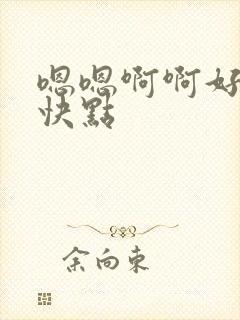 嗯嗯啊啊好
快點
余向東